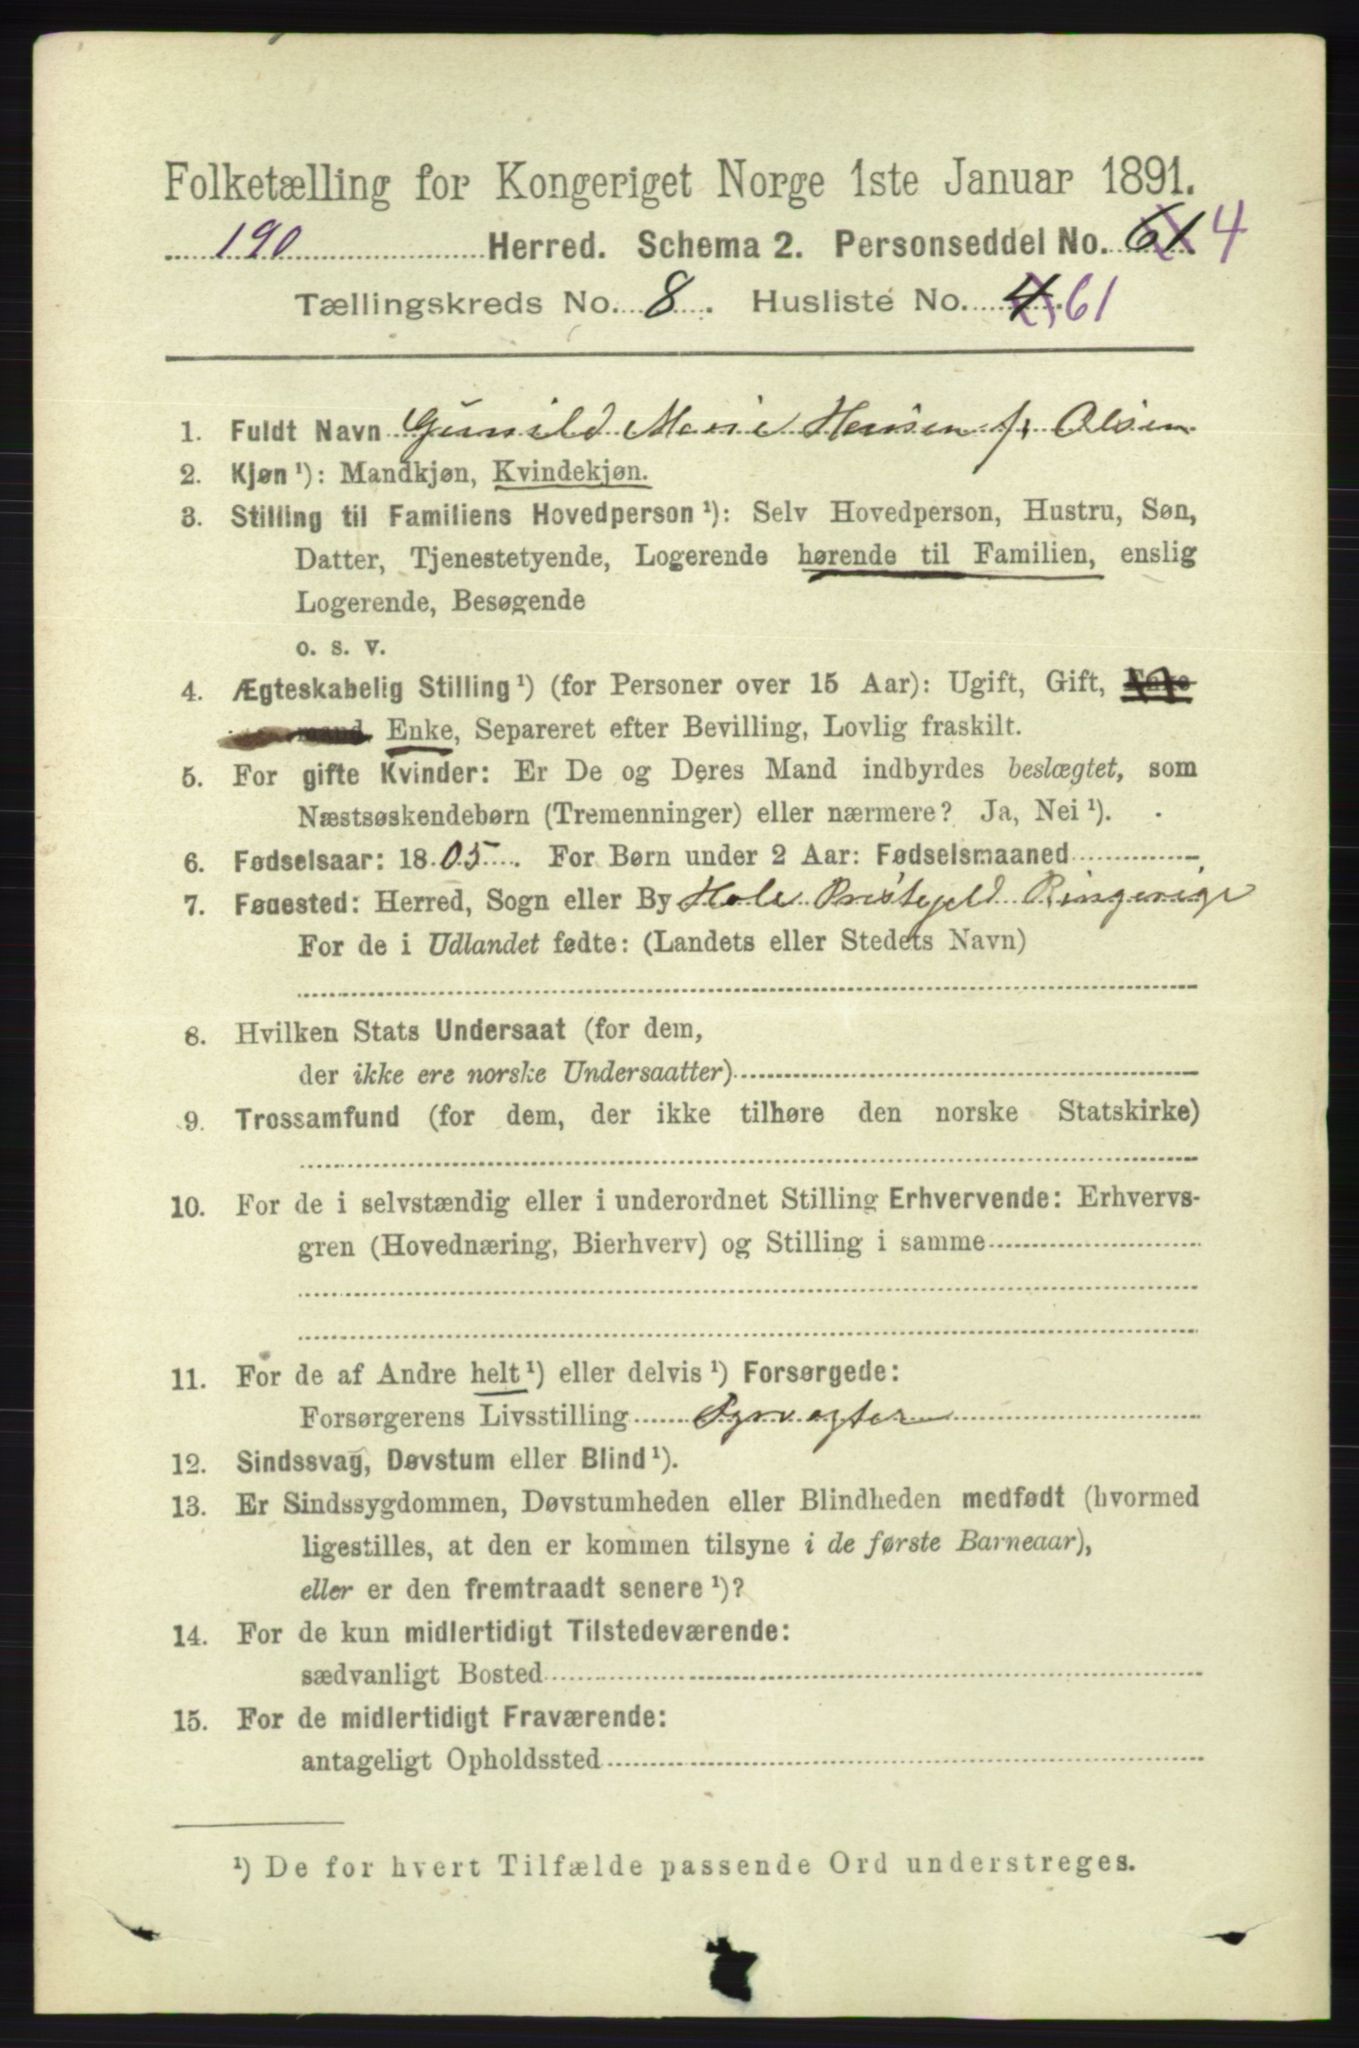 Folketælling for Kongeriget Norge 1ste Januar 1891.
190 Herred. Schema 2. Personseddel No. 61 4
Tællingskreds No. 8. Husliste No. 4. 61
1. Fuldt Navn Gunild Marie Hansen f. Olsen
2. Kjøn¹): Mandkjøn, Kvindekjøn.
3. Stilling til Familiens Hovedperson¹): Selv Hovedperson, Hustru, Søn,
Datter, Tjenestetyende, Logerende hørende til Familien, enslig
Logerende, Besøgende
o. s. v.
4. Ægteskabelig Stilling¹) (for Personer over 15 Aar): Ugift, Gift, Enke
mand Enke, Separeret efter Bevilling, Lovlig fraskilt.
5. For gifte Kvinder: Er De og Deres Mand indbyrdes beslægtet, som
Næstsøskendebørn (Tremenninger) eller nærmere? Ja, Nei¹).
6. Fødselsaar: 1805. For Børn under 2 Aar: Fødselsmaaned
7. Fødested: Herred, Sogn eller By Hole Prestegjeld Ringerige
For de i Udlandet fødte: (Landets eller Stedets Navn)
8. Hvilken Stats Undersaat (for dem,
der ikke ere norske Undersaatter)
9. Trossamfund (for dem, der ikke tilhøre den norske Statskirke)
10. For de i selvstændig eller i underordnet Stilling Erhvervende: Erhvervs-
gren (Hovednæring, Bierhverv) og Stilling i samme
11. For de af Andre helt¹) eller delvis¹) Forsørgede:
Forsørgerens Livsstilling Fyrvogter
12. Sindssvag, Døvstum eller Blind¹).
13. Er Sindssygdommen, Døvstumheden eller Blindheden medfødt (hvormed
ligestilles, at den er kommen tilsyne i de første Barneaar),
eller er den fremtraadt senere¹)?
14. For de kun midlertidigt Tilstedeværende:
sædvanligt Bosted
15. For de midlertidigt Fraværende:
antageligt Opholdssted
¹) De for hvert Tilfælde passende Ord understreges.